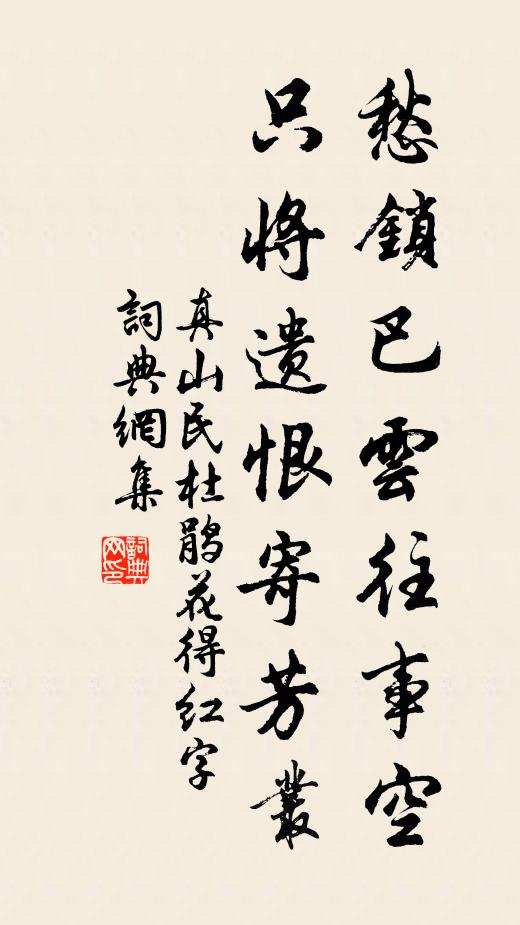 愁鎖巴雲往事空
只將遺恨寄芳叢
真山民杜鹃花得红字
詞典網集
詞典网印